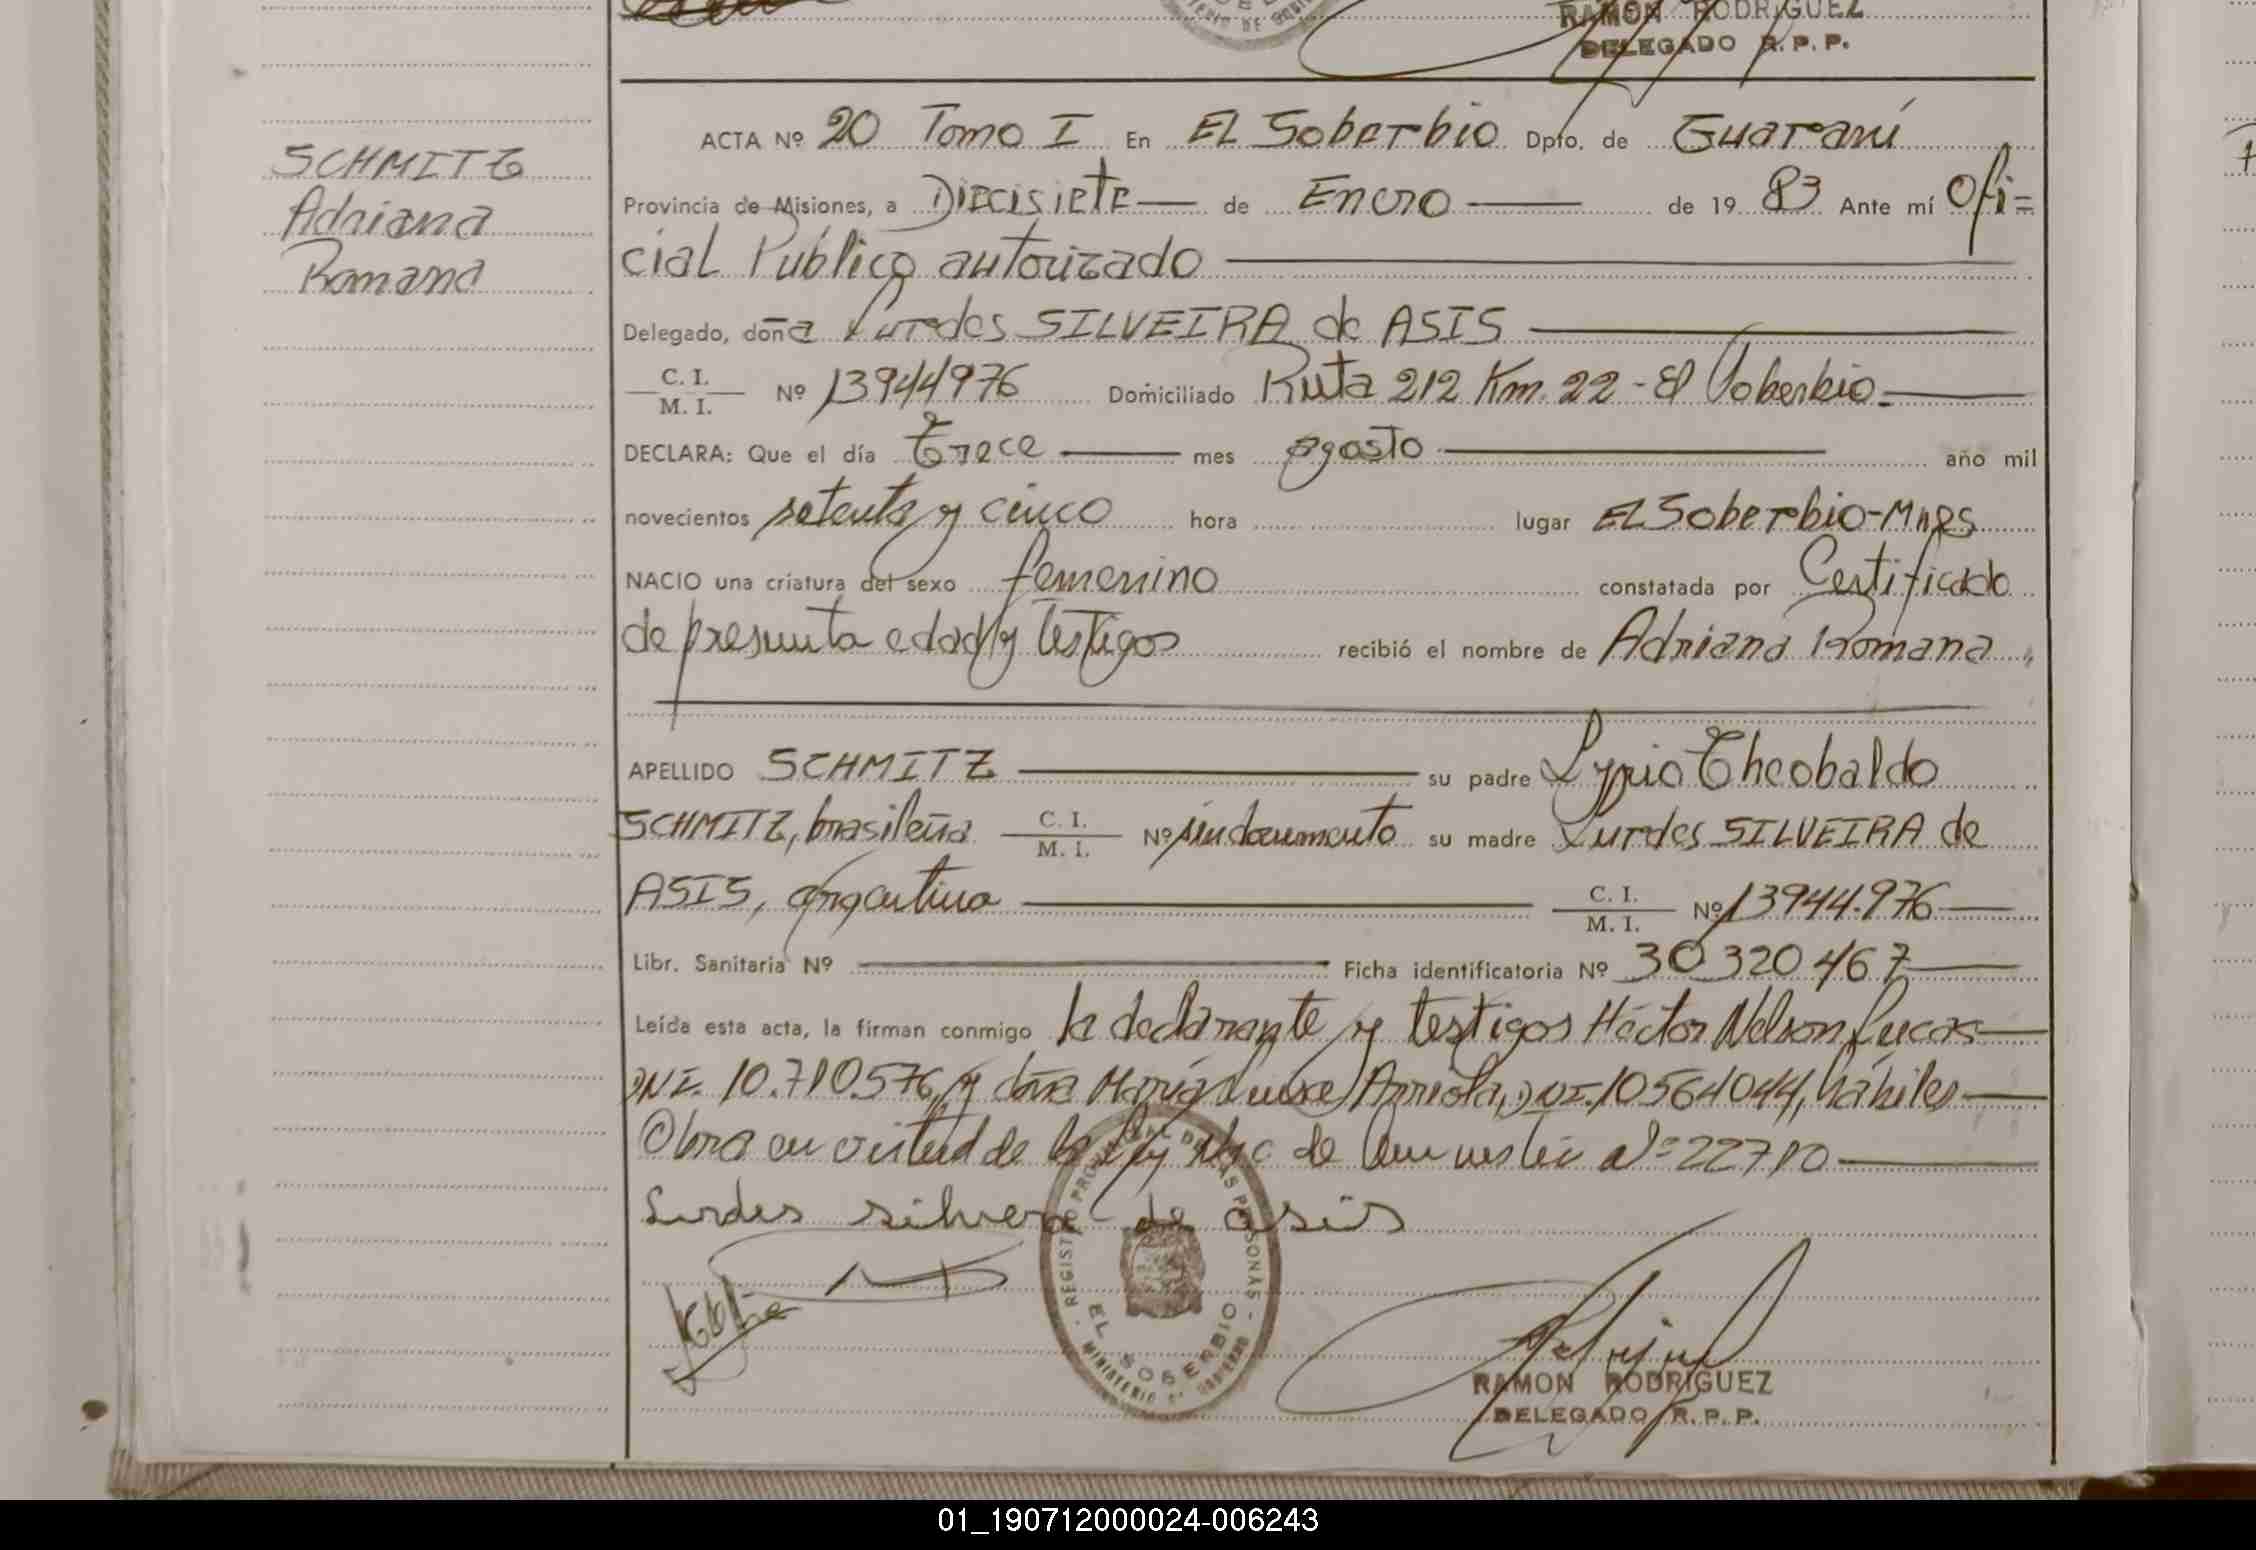 RAMON RODRIGUEZ
DELEGADO R. P. P.
SCHMITZ
Adriana
Romana
ACTA Nº 20 Tomo I En EL Soberbio Dpto. de Guaraní
Provincia de Misiones, a Diecisiete de Enero de 19 83 Ante mí Ofi=
cial Público autorizado
Delegado, doña Lurdes SILVEIRA de ASIS
C. I.
M. I. Nº 13944976 Domiciliado Ruta 212 Km. 22 - El Soberbio.
DECLARA: Que el día Trece mes agosto año mil
novecientos setenta y cinco hora lugar EL Soberbio-Mnes
NACIO una criatura del sexo femenino constatada por Certificado
de presunta edad y testigos recibió el nombre de Adriana Romana
APELLIDO SCHMITZ su padre Theobaldo
SCHMITZ, brasileña C. I.
M. I. Nº sin documento su madre Lurdes SILVEIRA de
ASIS, argentina C. I.
M. I. Nº 13944.976
Libr. Sanitaria Nº Ficha identificatoria Nº 30 320 467
Leída esta acta, la firman conmigo la declarante y testigos Héctor Nelson Lucas
DNI. 10.710.576, y doña María Luisa Arriola, DNI. 10564044, hábiles
Obra en virtud de la Ley Nac de Amnistía Nº 22710
Lurdes silvera de asis
REGISTRO PROVINCIAL DE LAS PERSONAS
EL SOBERBIO
MINISTERIO DE GOBIERNO
RAMON RODRIGUEZ
DELEGADO R. P. P.
01_190712000024-006243